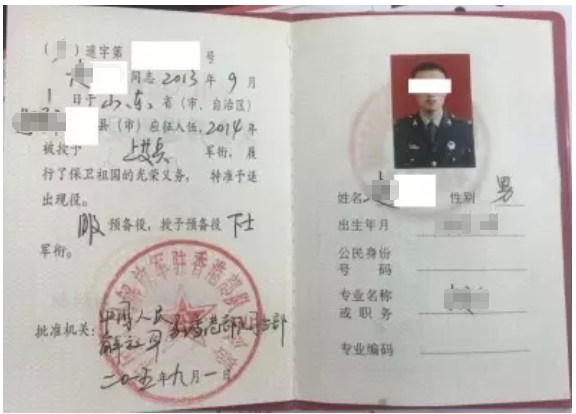 ( )退字第 号
同志2013年9月
日于山东省(市、自治区)
县(市)应征入伍,2014年
被授予 上等兵 军衔,履
行了保卫祖国的光荣义务,特准予退
出现役。
服预备役,授予预备役 下士
军衔。
批准机关:中国人民
解放军驻香港部队
二〇一五年九月一日
姓名 性别 男
出生年月
公民身份
号码
专业名称
或职务
专业编码